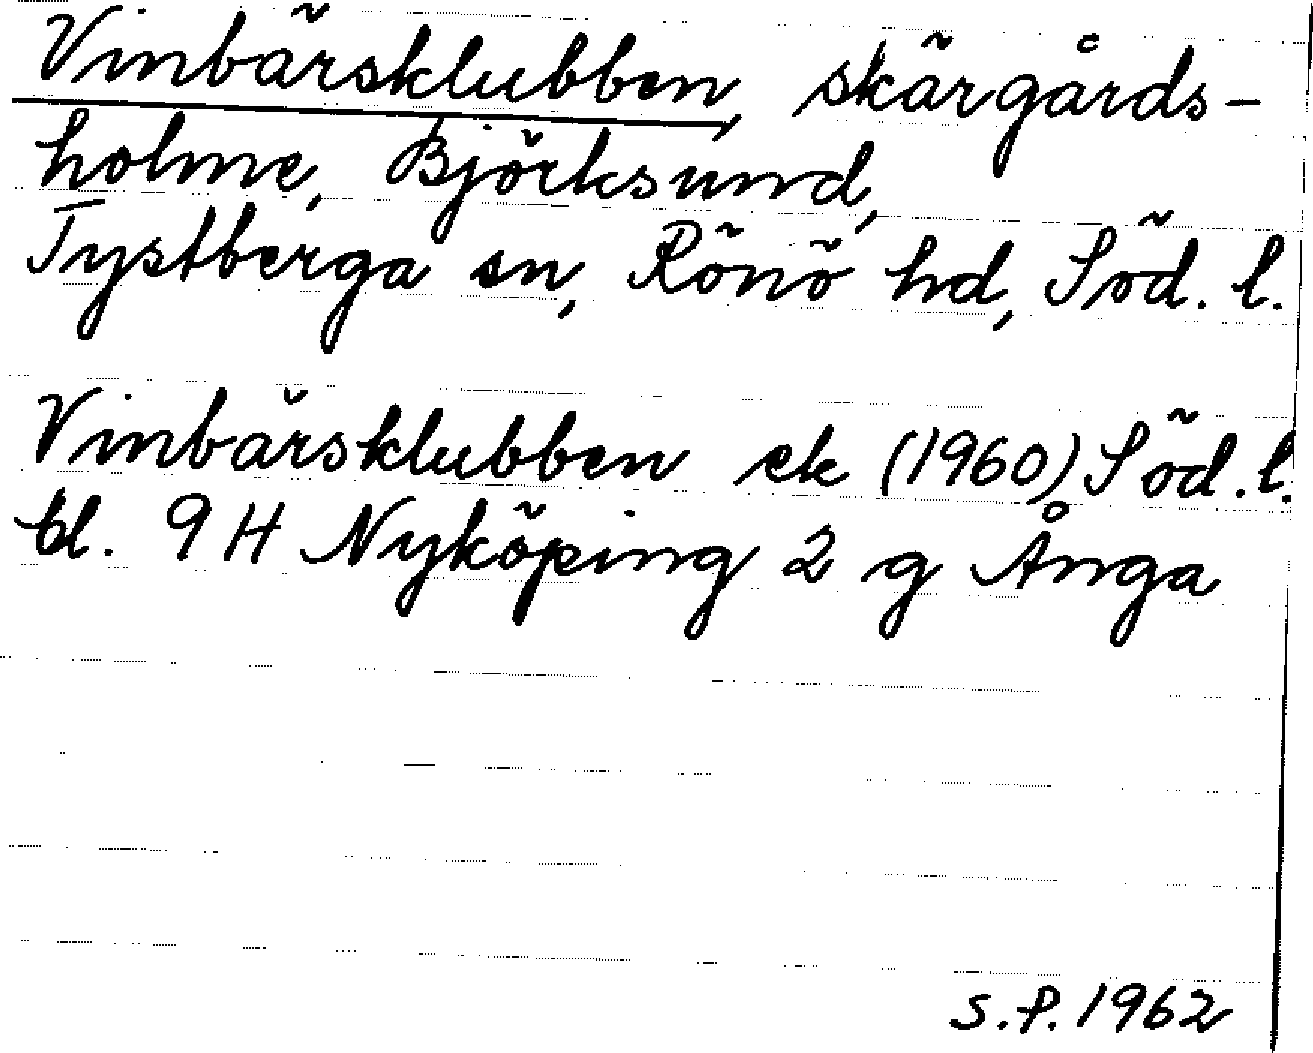 Vinbärsklubben, skärgårds-
holme, Björksund,
Tystberga sn, Rönö hd, Söd. l.
Vinbärsklubben ek (1960) Söd. l.
bl. 9 H Nyköping 2 g Ånga
S.P. 1962